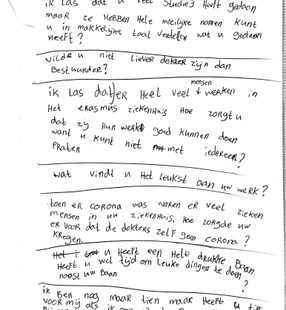 ik las dat u veel studies Heeft gedaan
maar ze Hebben Hele moeilijke namen kunt
u in makkelijke taal vertellen wat u gedaan
Heeft?
wilde u niet liever dokter zijn dan
Bestuurder?
ik las dat er Heel veel mensen werken in
Het erasmus ziekenhuis Hoe zorgt u
dat zij Hun werk goed kunnen doen
want u kunt niet met iedereen?
Praten
wat vindt u Het leukst aan uw werk?
toen er corona was waren er veel zieken
mensen in uw ziekenhuis, Hoe zorgde uw
er voor dat de dokters zelf geen corona?
kregen.
u Heeft een Hele drukke Baan
Heeft u wel tijd om leuke dingen te doen?
naast uw Baan
ik Ben nog maar tien maar Heeft u
voor mij als ik